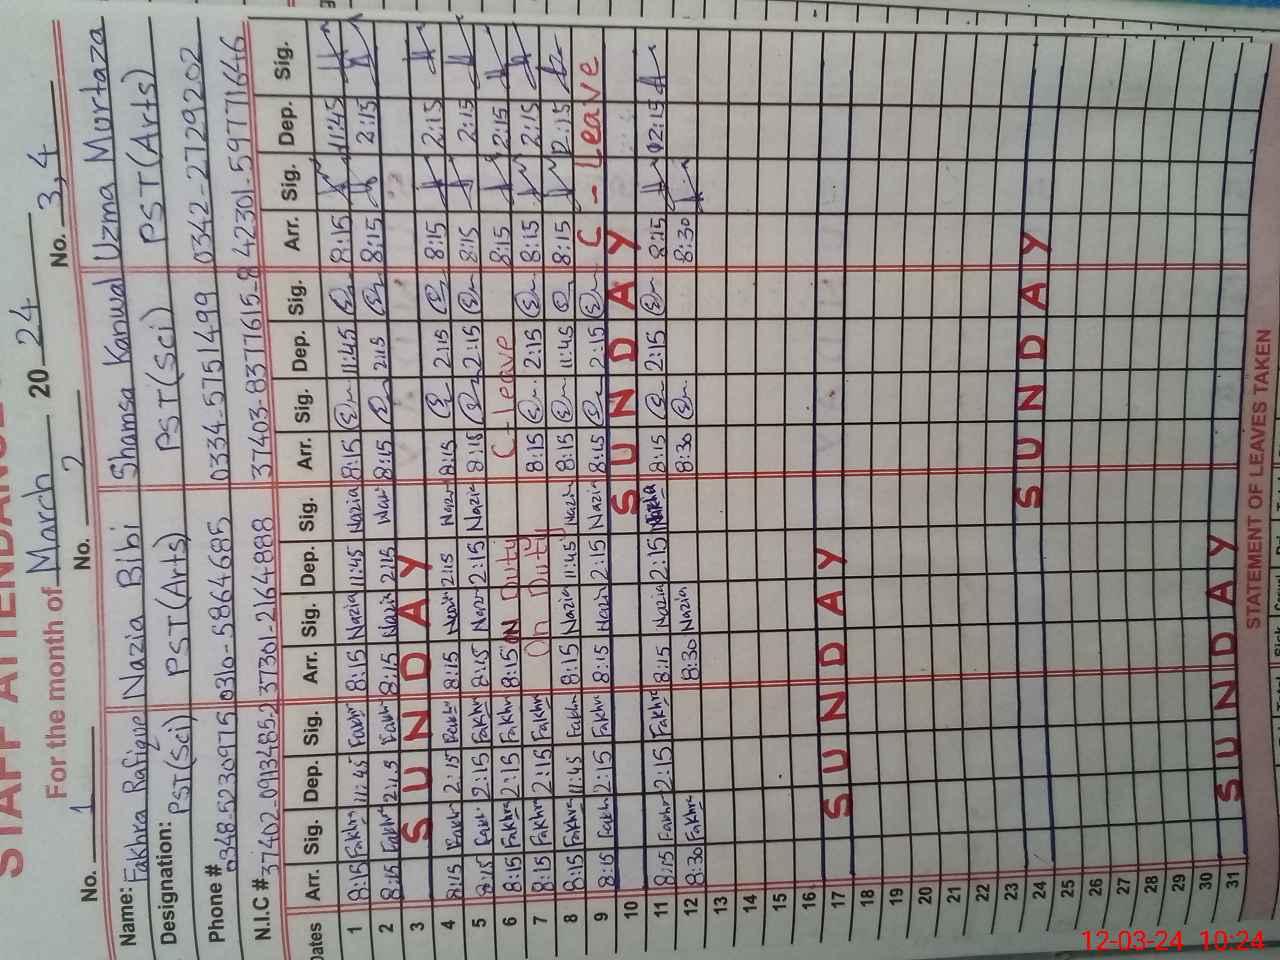 STAFF ATTENDANCE
For the month of March 2024
No. 1 No. 2 No. 3, 4
Name: Fakhra Rafique Nazia Bibi Shamsa Kanwal Uzma Murtaza
Designation: PST(Sci) PST(Arts) PST(Sci) PST(Arts)
Phone # 0348-5230975 0310-5864685 0334-5751499 0342-2729202
N.I.C # 37402-0913485-2 37301-2164888 37403-8377615-8 42301-5977164-6
Dates Arr. Sig. Dep. Sig. Arr. Sig. Dep. Sig. Arr. Sig. Dep. Sig. Arr. Sig. Dep. Sig.
1 8:15 Fakhra 11:45 Fakhr 8:15 Nazia 11:45 Nazia 8:15 11:45 8:15 11:45
2 8:15 Fakhra 2:15 Fakhr 8:15 Nazia 2:15 Nazi 8:15 2:15 8:15 2:15
3 SUNDAY
4 8:15 Fakhr 2:15 Fakhr 8:15 Nazi 2:15 Nazi 8:15 2:15 8:15 2:15
5 8:15 Fakh 2:15 Fakhr 8:15 Nazi 2:15 Nazia 8:15 2:15 8:15 2:15
6 8:15 Fakhra 2:15 Fakhr 8:15 ON Duty C-Leave 8:15 2:15
7 8:15 Fakhra 2:15 Fakhr On Duty 8:15 2:15 8:15 2:15
8 8:15 Fakhra 11:45 Fakhr 8:15 Nazia 11:45 Nazi 8:15 11:45 8:15 2:15
9 8:15 Fakhr 2:15 Fakhr 8:15 Nazi 2:15 Nazia 8:15 2:15 C-Leave
10 SUNDAY
11 8:15 Fakhr 2:15 Fakhra 8:15 Nazia 2:15 8:15 2:15 8:15 2:15
12 8:30 Fakhra 8:30 Nazia 8:30 8:30
13
14
15
16
17 SUNDAY
18
19
20
21
22
23
24 SUNDAY
25
26
27
28
29
30
31 SUNDAY
STATEMENT OF LEAVES TAKEN
12-03-24 10:24